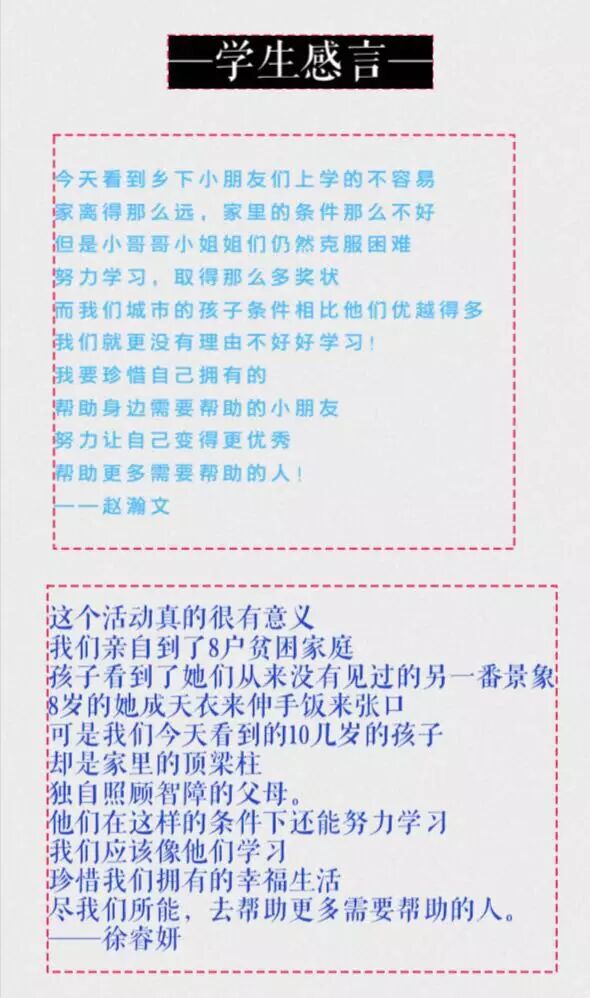 —学生感言—
今天看到乡下小朋友们上学的不容易
家离得那么远，家里的条件那么不好
但是小哥哥小姐姐们仍然克服困难
努力学习，取得那么多奖状
而我们城市的孩子条件相比他们优越得多
我们就更没有理由不好好学习！
我要珍惜自己拥有的
帮助身边需要帮助的小朋友
努力让自己变得更优秀
帮助更多需要帮助的人！
——赵瀚文
这个活动真的很有意义
我们亲自到了8户贫困家庭
孩子看到了她们从来没有见过的另一番景象
8岁的她成天衣来伸手饭来张口
可是我们今天看到的10几岁的孩子
却是家里的顶梁柱
独自照顾智障的父母。
他们在这样的条件下还能努力学习
我们应该像他们学习
珍惜我们拥有的幸福生活
尽我们所能，去帮助更多需要帮助的人。
——徐睿妍